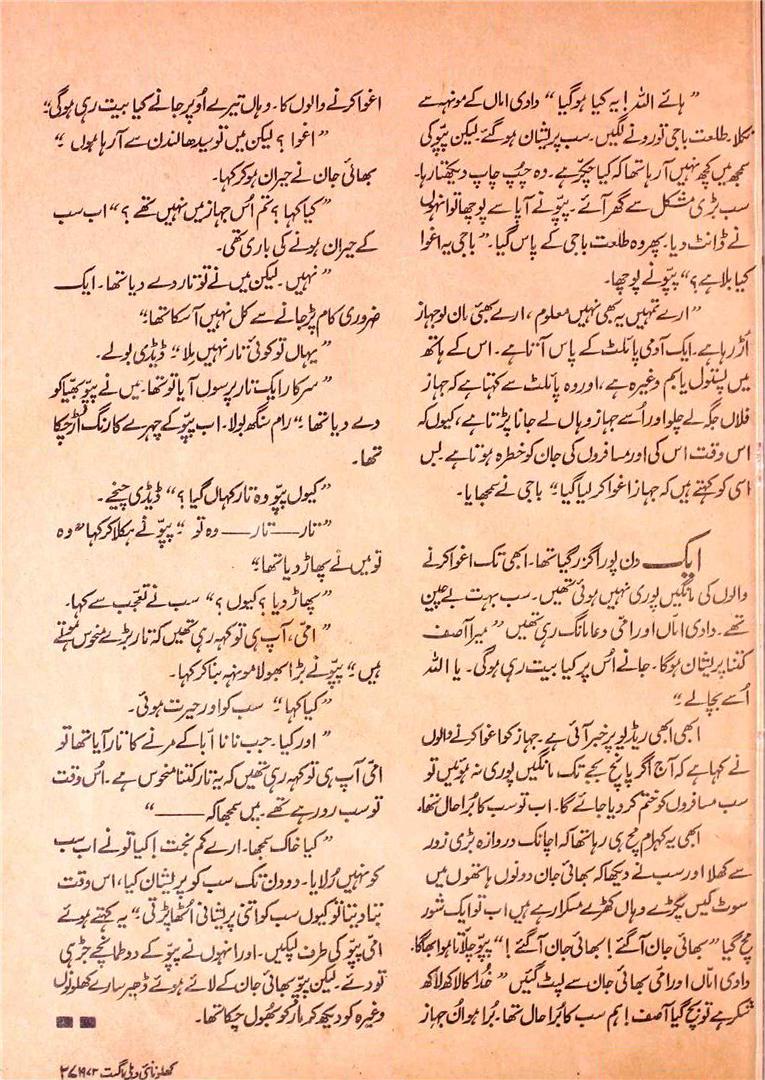 ”ہائے اللہ! یہ کیا ہوگیا“ دادی اماں کے مونہہ سے
نکلا۔ طلعت باجی تو رونے لگیں۔ سب پریشان ہوگئے۔ لیکن پپّو کی
سمجھ میں کچھ نہیں آرہا تھا کہ کیا چکّر ہے۔ وہ چُپ چاپ دیکھتا رہا۔
سب بڑی مشکل سے گھر آئے۔ پپّو نے آپا سے پوچھا تو انہوں
نے ڈانٹ دیا۔ پھر وہ طلعت باجی کے پاس گیا۔ ”باجی یہ اغوا
کیا بلا ہے؟“ پپّو نے پوچھا۔
”ارے تمہیں یہ بھی نہیں معلوم، ارے بھئی ان لو جہاز
اُڑ رہا ہے۔ ایک آدمی پائلٹ کے پاس آتا ہے۔ اس کے ہاتھ
میں پستول یا بم وغیرہ ہے، اور وہ پائلٹ سے کہتا ہے کہ جہاز
فلاں جگہ لے چلو اور اُسے جہاز وہاں لے جانا پڑتا ہے، کیوں کہ
اس وقت اس کی اور مسافروں کی جان کو خطرہ ہوتا ہے۔ بس
اسی کو کہتے ہیں کہ جہاز اغوا کر لیا گیا“۔ باجی نے سمجھایا۔
ایک دن پورا گزر گیا تھا۔ ابھی تک اغوا کرنے
والوں کی مانگیں پوری نہیں ہوئی تھیں۔ سب بہت بے چین
تھے۔ دادی امّاں اور امّی دعا مانگ رہی تھیں ”میرا آصف
کتنا پریشان ہوگا۔ جانے اُس پر کیا بیت رہی ہوگی۔ یا اللہ
اُسے بچالے“۔
ابھی ابھی ریڈیو پر خبر آئی ہے۔ جہاز کو اغوا کرنے والوں
نے کہا ہے کہ آج اگر پانچ بجے تک مانگیں پوری نہ ہوئیں تو
سب مسافروں کو ختم کر دیا جائے گا۔ اب تو سب کا بُرا حال تھا۔
ابھی یہ کہرام مچ ہی رہا تھا کہ اچانک دروازہ بڑی زور
سے کھلا اور سب نے دیکھا کہ بھائی جان دونوں ہاتھوں میں
سوٹ کیس پکڑے وہاں کھڑے مسکرا رہے ہیں اب تو ایک شور
مچ گیا ”بھائی جان آگئے! بھائی جان آگئے!“ پپّو چلّاتا ہوا بھاگا۔
دادی امّاں اور امّی بھائی جان سے لپٹ گئیں ”خُدا کا لاکھ لاکھ
شکر ہے تو بچ گیا آصف! ہم سب کا بُرا حال تھا۔ بُرا ہو اُن جہاز
اغوا کرنے والوں کا۔ وہاں تیرے اُوپر جانے کیا بیت رہی ہوگی“۔
”اغوا؟ لیکن میں تو سیدھا لندن سے آرہا ہوں“۔
بھائی جان نے حیران ہوکر کہا۔
”کیا کہا؟ تم اُس جہاز میں نہیں تھے؟“ اب سب
کے حیران ہونے کی باری تھی۔
”نہیں۔ لیکن میں نے تو تار دے دیا تھا۔ ایک
ضروری کام پڑ جانے سے کل نہیں آسکا تھا“۔
”یہاں تو کوئی تار نہیں مِلا“۔ ڈیڈی بولے۔
”سرکار ایک تار پرسوں آیا تو تھا۔ میں نے پپّو بھیّا کو
دے دیا تھا“۔ رام سنگھ بولا۔ اب پپّو کے چہرے کا رنگ اُڑ چکا
تھا۔
”کیوں پپّو وہ تار کہاں گیا؟“ ڈیڈی چیخے۔
”تار—تار—وہ تو“ پپّو نے ہکلا کر کہا ”وہ
تو میں نے پھاڑ دیا تھا“
”پھاڑ دیا؟ کیوں؟“ سب نے تعجّب سے کہا۔
”امّی، آپ ہی تو کہہ رہی تھیں کہ تار بڑے منحوس ہوتے
ہیں“۔ پپّو نے بڑا بھولا مونہہ بنا کر کہا۔
”کیا کہا“۔ سب کو اور حیرت ہوئی۔
”اور کیا۔ جب نانا ابّا کے مرنے کا تار آیا تھا تو
امّی آپ ہی تو کہہ رہی تھیں کہ یہ تار کتنا منحوس ہے۔ اُس وقت
تو سب رو رہے تھے۔ میں سمجھا کہ ——“
”کیا خاک سمجھا۔ ارے کم بخت! کیا تو نے اب سب
کو نہیں رُلایا۔ دو دن تک سب کو پریشان کیا، اس وقت
بتا دیتا تو کیوں سب کو اتنی پریشانی اُٹھانا پڑتی“۔ یہ کہتے ہوئے
امّی پپّو کی طرف لپکیں۔ اور انہوں نے پپّو کے دو طمانچے جڑ ہی
تو دئے۔ لیکن پپّو بھائی جان کے لائے ہوئے ڈھیر سارے کھلونوں
وغیرہ کو دیکھ کر مار کو بھُول چکا تھا۔
کھلونا نئی دہلی اگست ۱۹۷۳ ۲۷